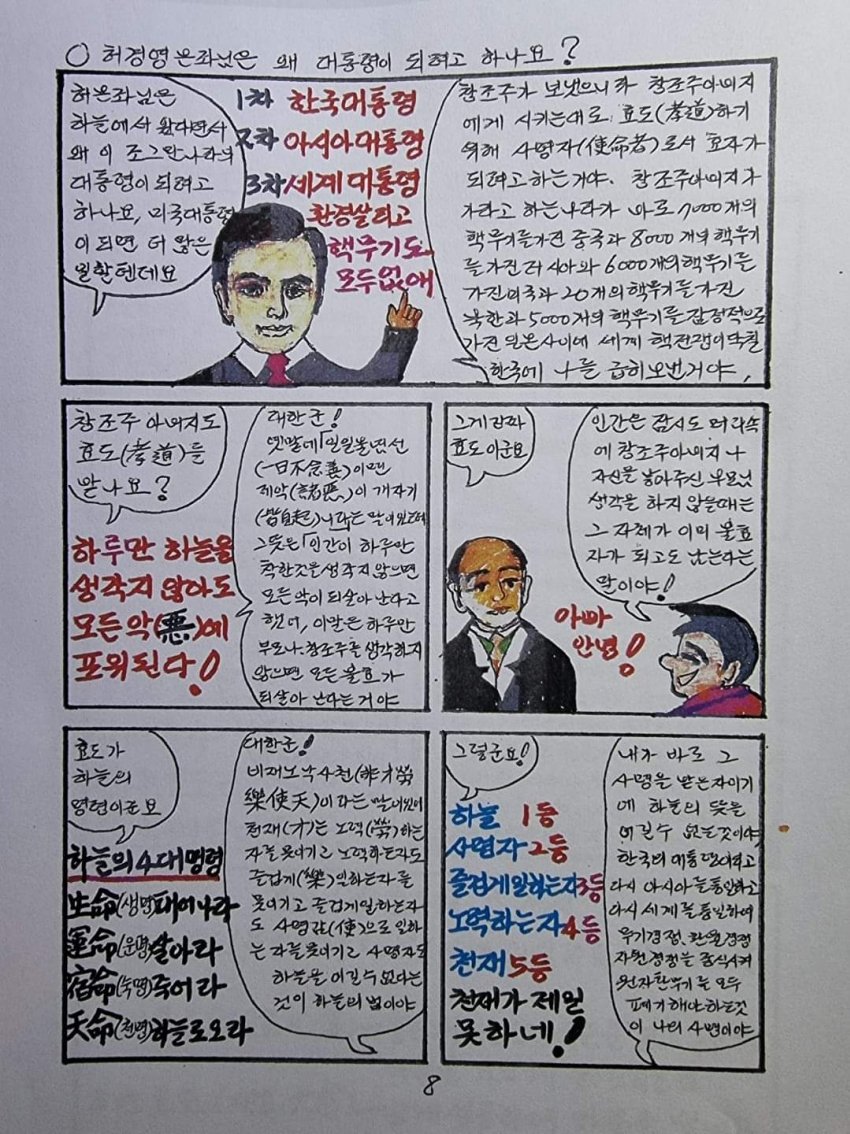 ○ 허경영 본좌님은 왜 대통령이 되려고 하나요?
허본좌님은
하늘에서 왔다면서
왜 이 조그만나라의
대통령이되려고
하나요, 미국대통령
이 되면 더 많은
일할텐데요
1차 한국대통령
2차 아시아대통령
3차 세계대통령
환경살리고
핵무기도
모두없애
창조주가 보냈으니까 창조주아버지
에게 시키는대로 효도(孝道)하기
위해 사명자(使命者)로서 효자가
되려고하는거야. 창조주아버지가
가라고 하는나라가 바로 7000개의
핵무기를가진 중국과 8000개의 핵무기
를가진러시아와 6000개의핵무기를
가진미국과 20개의핵무기를가진
북한과 5000개의 핵무기를 잠정적으로
가진 일본사이에 세계 핵전쟁이닥칠
한국에 나를 급히보낸거야,
창조주 아버지도
효도(孝道)를
받나요?
하루만 하늘을
생각지 않아도
모든악(惡)에
포위된다!
대한군!
옛말에「일일불념선
(一日不念善)이면
제악(諸惡)이 개자기
(皆自起)니라는 말이있는데
그뜻은「인간이 하루만
착한것을생각지 않으면
모든악이되살아난다고
했어, 이말은하루만
부모나 창조주를생각하지
않으면 모든 불효가
되살아 난다는거야
그게 진짜
효도이군요
인간은 잠시도 머리속
에 창조주아버지 나
자신을 낳아주신 부모님
생각을 하지 않을때는
그 자체가 이미 불효
자가 되고도 남는다는
말이야!
아빠
안녕!
효도가
하늘의
명령이군요
하늘의4대명령
生命(생명)태어나라
運命(운명)살아라
宿命(숙명)죽어라
天命(천명)하늘로오라
대한군!
비재노낙사천(非才勞
樂使天)이라는 말이있어
천재(才)는 노력(勞)하는
자를못이기고 노력하는자도
즐겁게(樂)일하는자를
못이기고 즐겁게일하는자
도 사명감(使)으로 일하
는 자를못이기고 사명자도
하늘을 이길수없다는
것이 하늘의법이야
그렇군요!
하늘 1등
사명자 2등
즐겁게일하는자3등
노력하는자4등
천재 5등
천재가 제일
못하네!
내가 바로 그
사명을 받은자이기
에 하늘의 뜻을
어길수 없는것이야,
한국의 대통령이되고
다시 아시아를통일하고
다시 세계를통일하여
무기경쟁, 환율경쟁
자원경쟁을 종식시켜
원자핵무기를 모두
폐기해야하는것
이 나의 사명이야
8